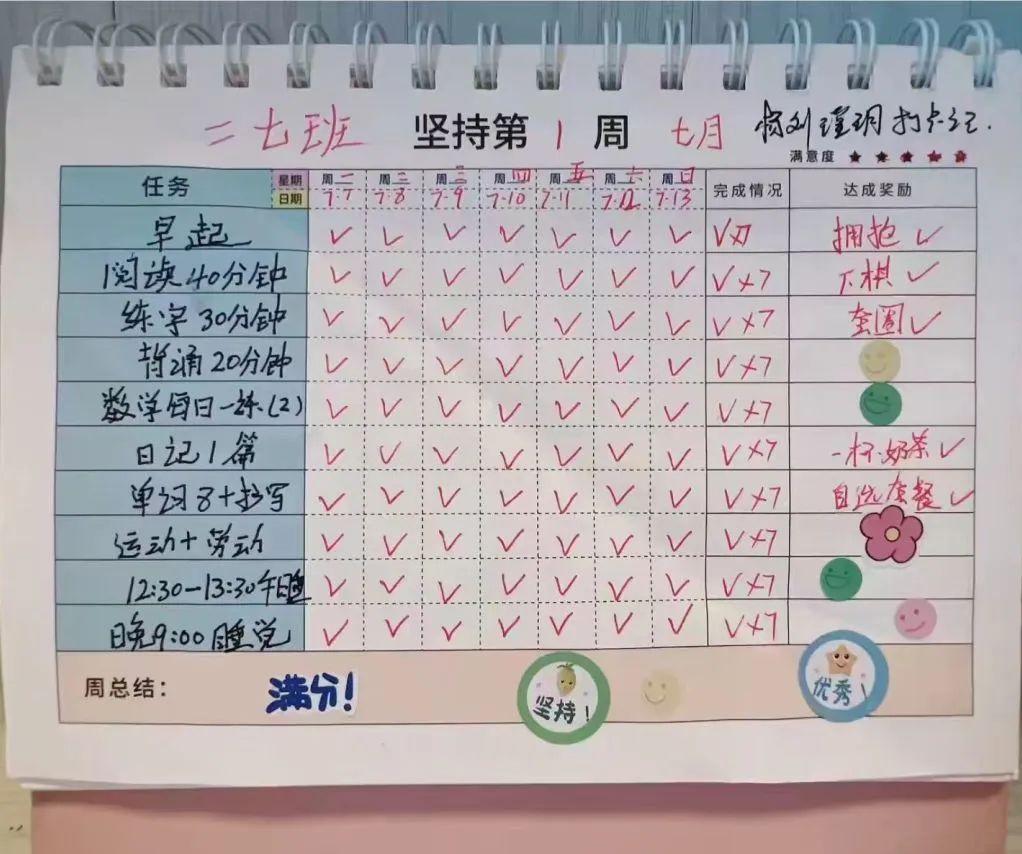 二七班 坚持第1周 七月 杨刘瑾玥打卡记.
满意度 ★★★★★
任务 星期 日期 周一 周二 周三 周四 周五 周六 周日 完成情况 达成奖励
7.7 7.8 7.9 7.10 7.11 7.12 7.13
早起 ✓ ✓ ✓ ✓ ✓ ✓ ✓ ✓×7 拥抱 ✓
阅读40分钟 ✓ ✓ ✓ ✓ ✓ ✓ ✓ ✓×7 下棋 ✓
练字30分钟 ✓ ✓ ✓ ✓ ✓ ✓ ✓ ✓×7 套圈 ✓
背诵20分钟 ✓ ✓ ✓ ✓ ✓ ✓ ✓ ✓×7
数学每日一练(2) ✓ ✓ ✓ ✓ ✓ ✓ ✓ ✓×7
日记1篇 ✓ ✓ ✓ ✓ ✓ ✓ ✓ ✓×7 一杯奶茶 ✓
单词8+书写 ✓ ✓ ✓ ✓ ✓ ✓ ✓ ✓×7 自选套餐 ✓
运动+劳动 ✓ ✓ ✓ ✓ ✓ ✓ ✓ ✓×7
12:30-13:30午睡 ✓ ✓ ✓ ✓ ✓ ✓ ✓ ✓×7
晚9:00睡觉 ✓ ✓ ✓ ✓ ✓ ✓ ✓ ✓×7
周总结: 满分! 坚持! 优秀!